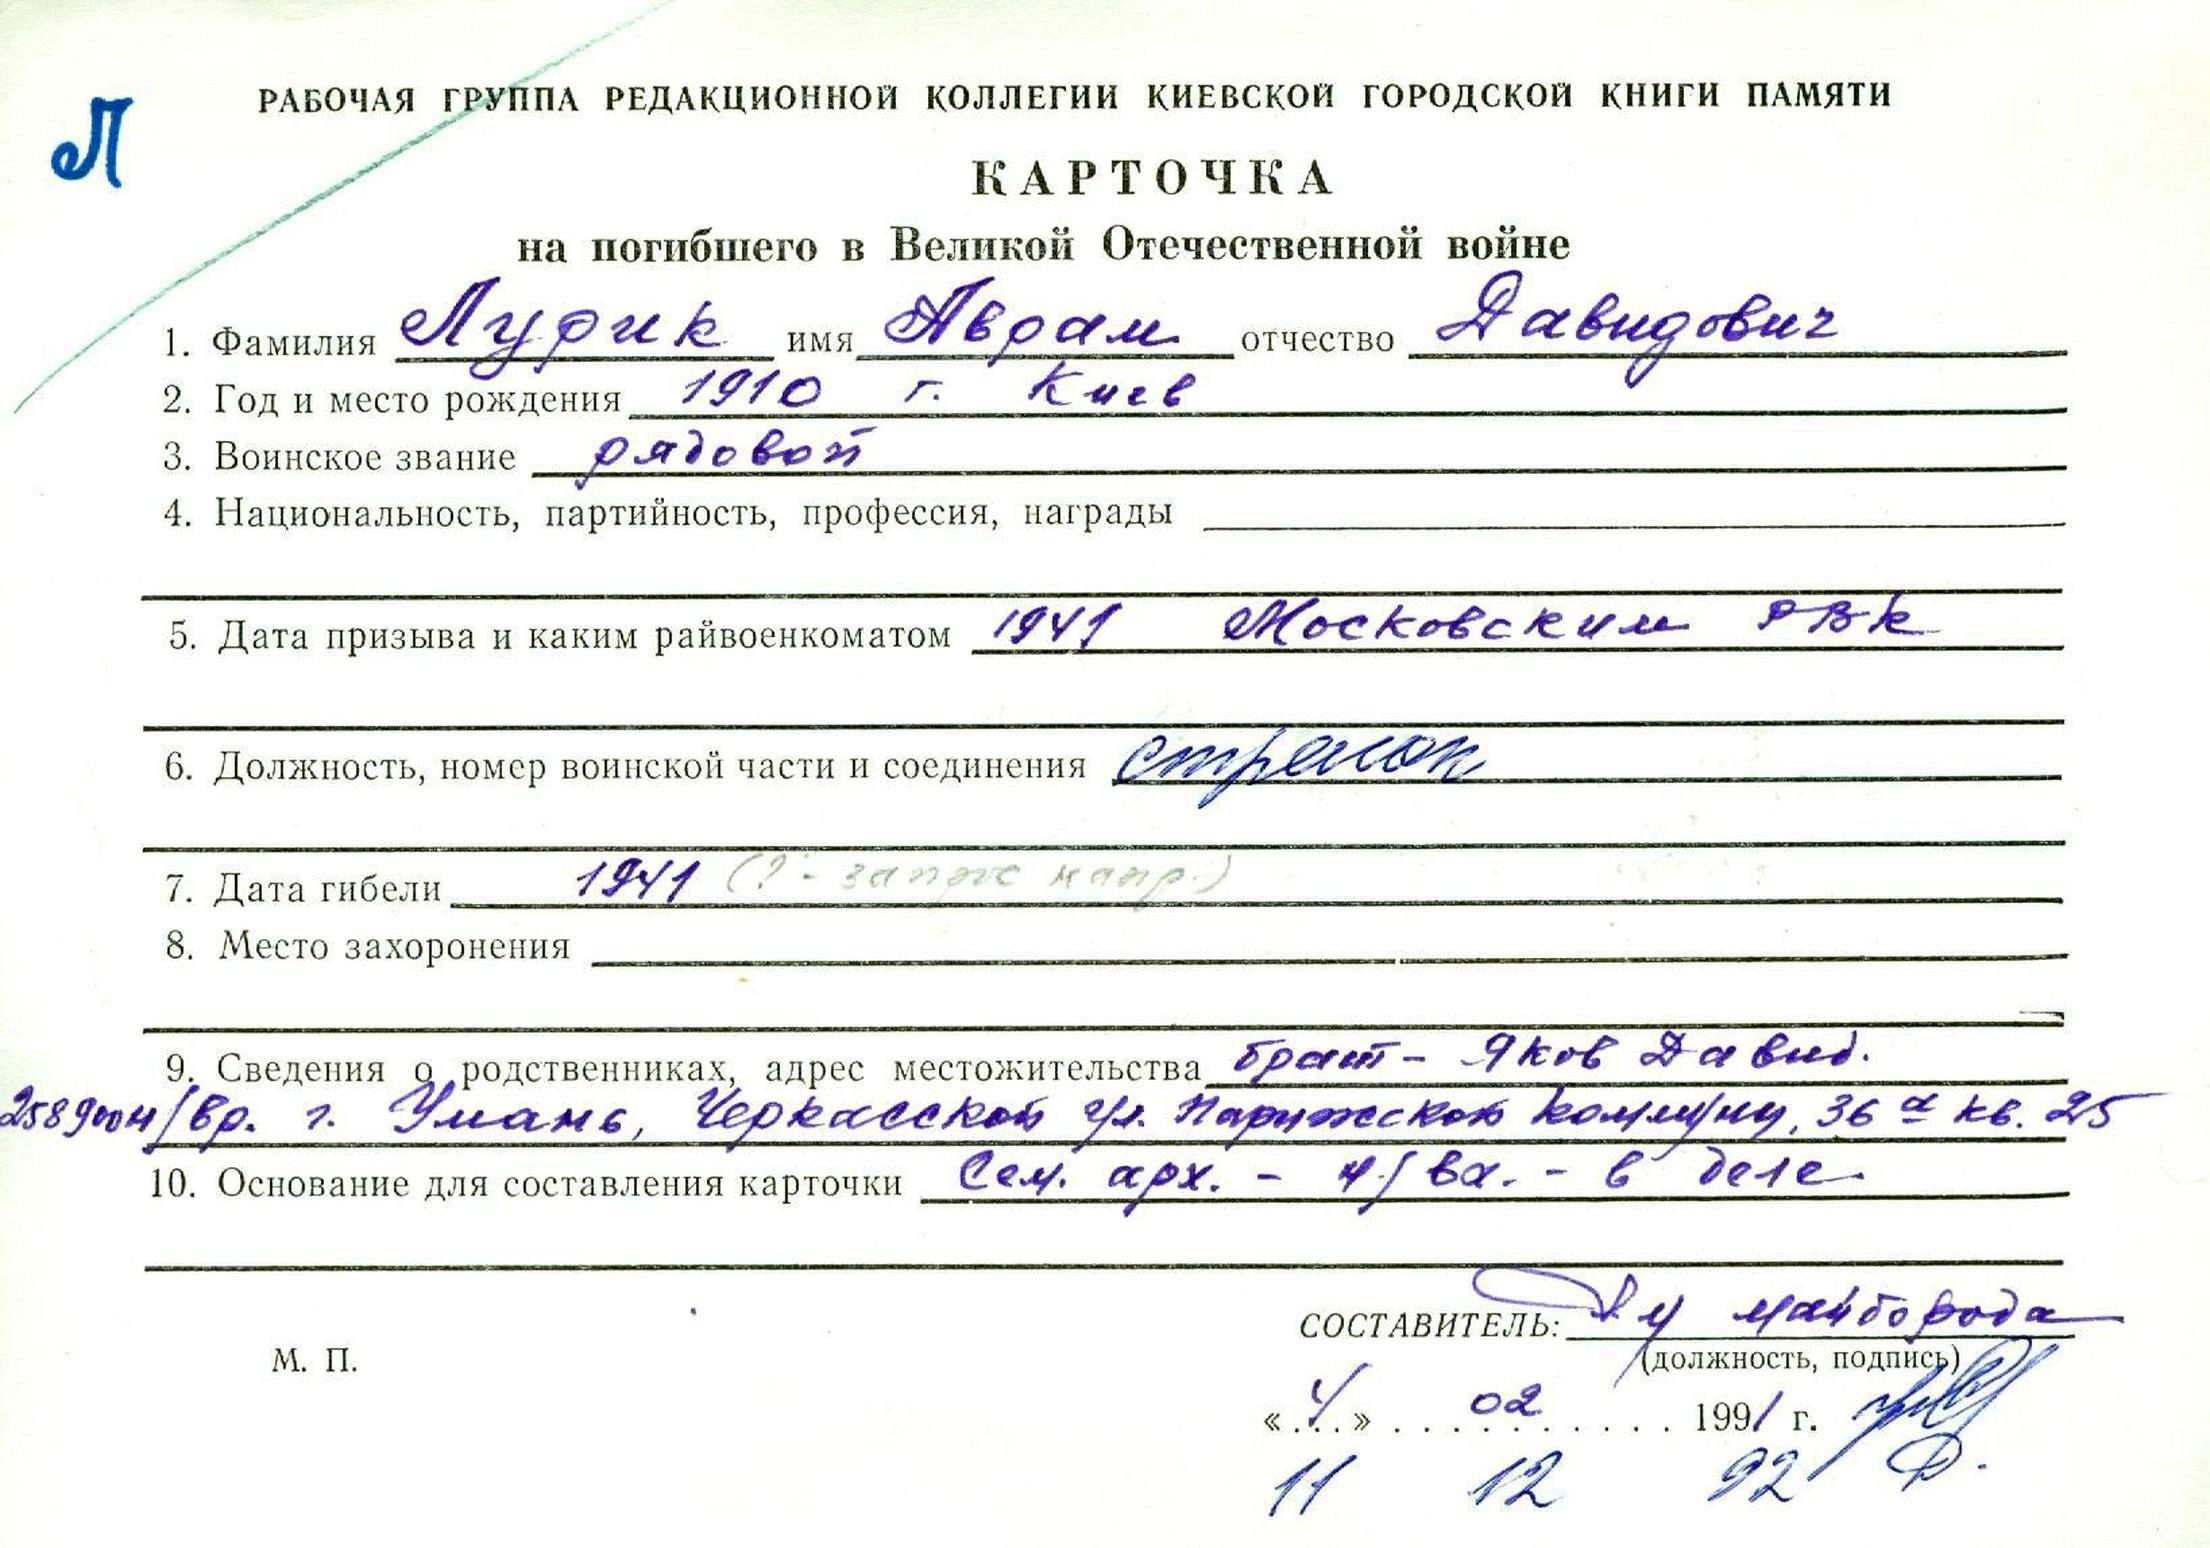 РАБОЧАЯ ГРУППА РЕДАКЦИОННОЙ КОЛЛЕГИИ КИЕВСКОЙ ГОРОДСКОЙ КНИГИ ПАМЯТИ
Л
КАРТОЧКА
на погибшего в Великой Отечественной войне
1. Фамилия Лурик имя Аврам отчество Давидович
2. Год и место рождения 1910 г. Киев
3. Воинское звание рядовой
4. Национальность, партийность, профессия, награды
5. Дата призыва и каким райвоенкоматом 1941 Московским РВК
6. Должность, номер воинской части и соединения стрелок
7. Дата гибели 1941 (? - запрос напр.)
8. Место захоронения
9. Сведения о родственниках, адрес местожительства брат - Яков Давид.
г. Умань, Черкасской ул. Парижской коммуны, 36 а кв. 25
10. Основание для составления карточки Сем. арх. - - в деле
СОСТАВИТЕЛЬ: Майборода
М. П.
(должность, подпись)
«4» 02 1991 г.
11 12 92